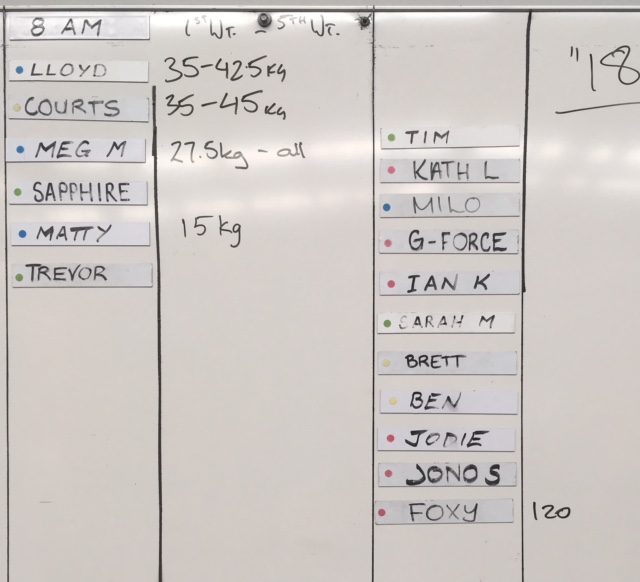 8 AM 1ST WT. - 5TH WT.
LLOYD 35-42.5kg
COURTS 35-45kg
MEG M 27.5kg - all
SAPPHIRE
MATTY 15kg
TREVOR
TIM
KATH L
MILO
G-FORCE
IAN K
SARAH M
BRETT
BEN
JODIE
JONO S
FOXY 120
"18